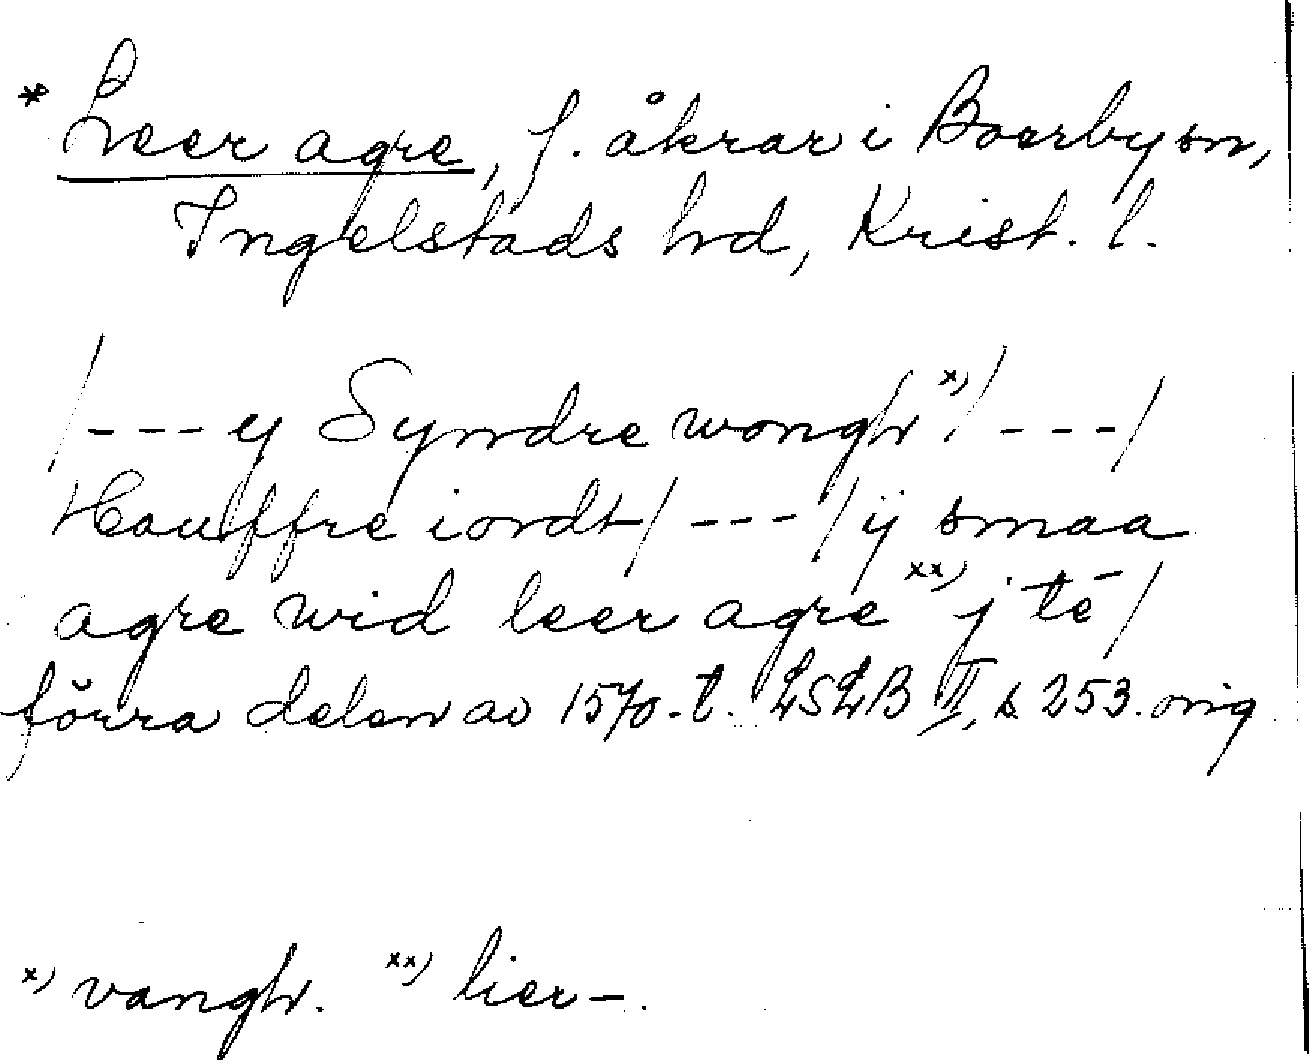 * Leer agre, f. åkrar i Boerby sn,
Ingelstads hd, Krist. l.
/---y Syndre wongh x)/---/
Houffre iordt/---/ij smaa
agre wid leer agre xx) j te/
förra delen av 1570-t. LSLB II, s. 253. orig
x) vangh. xx) lier-.